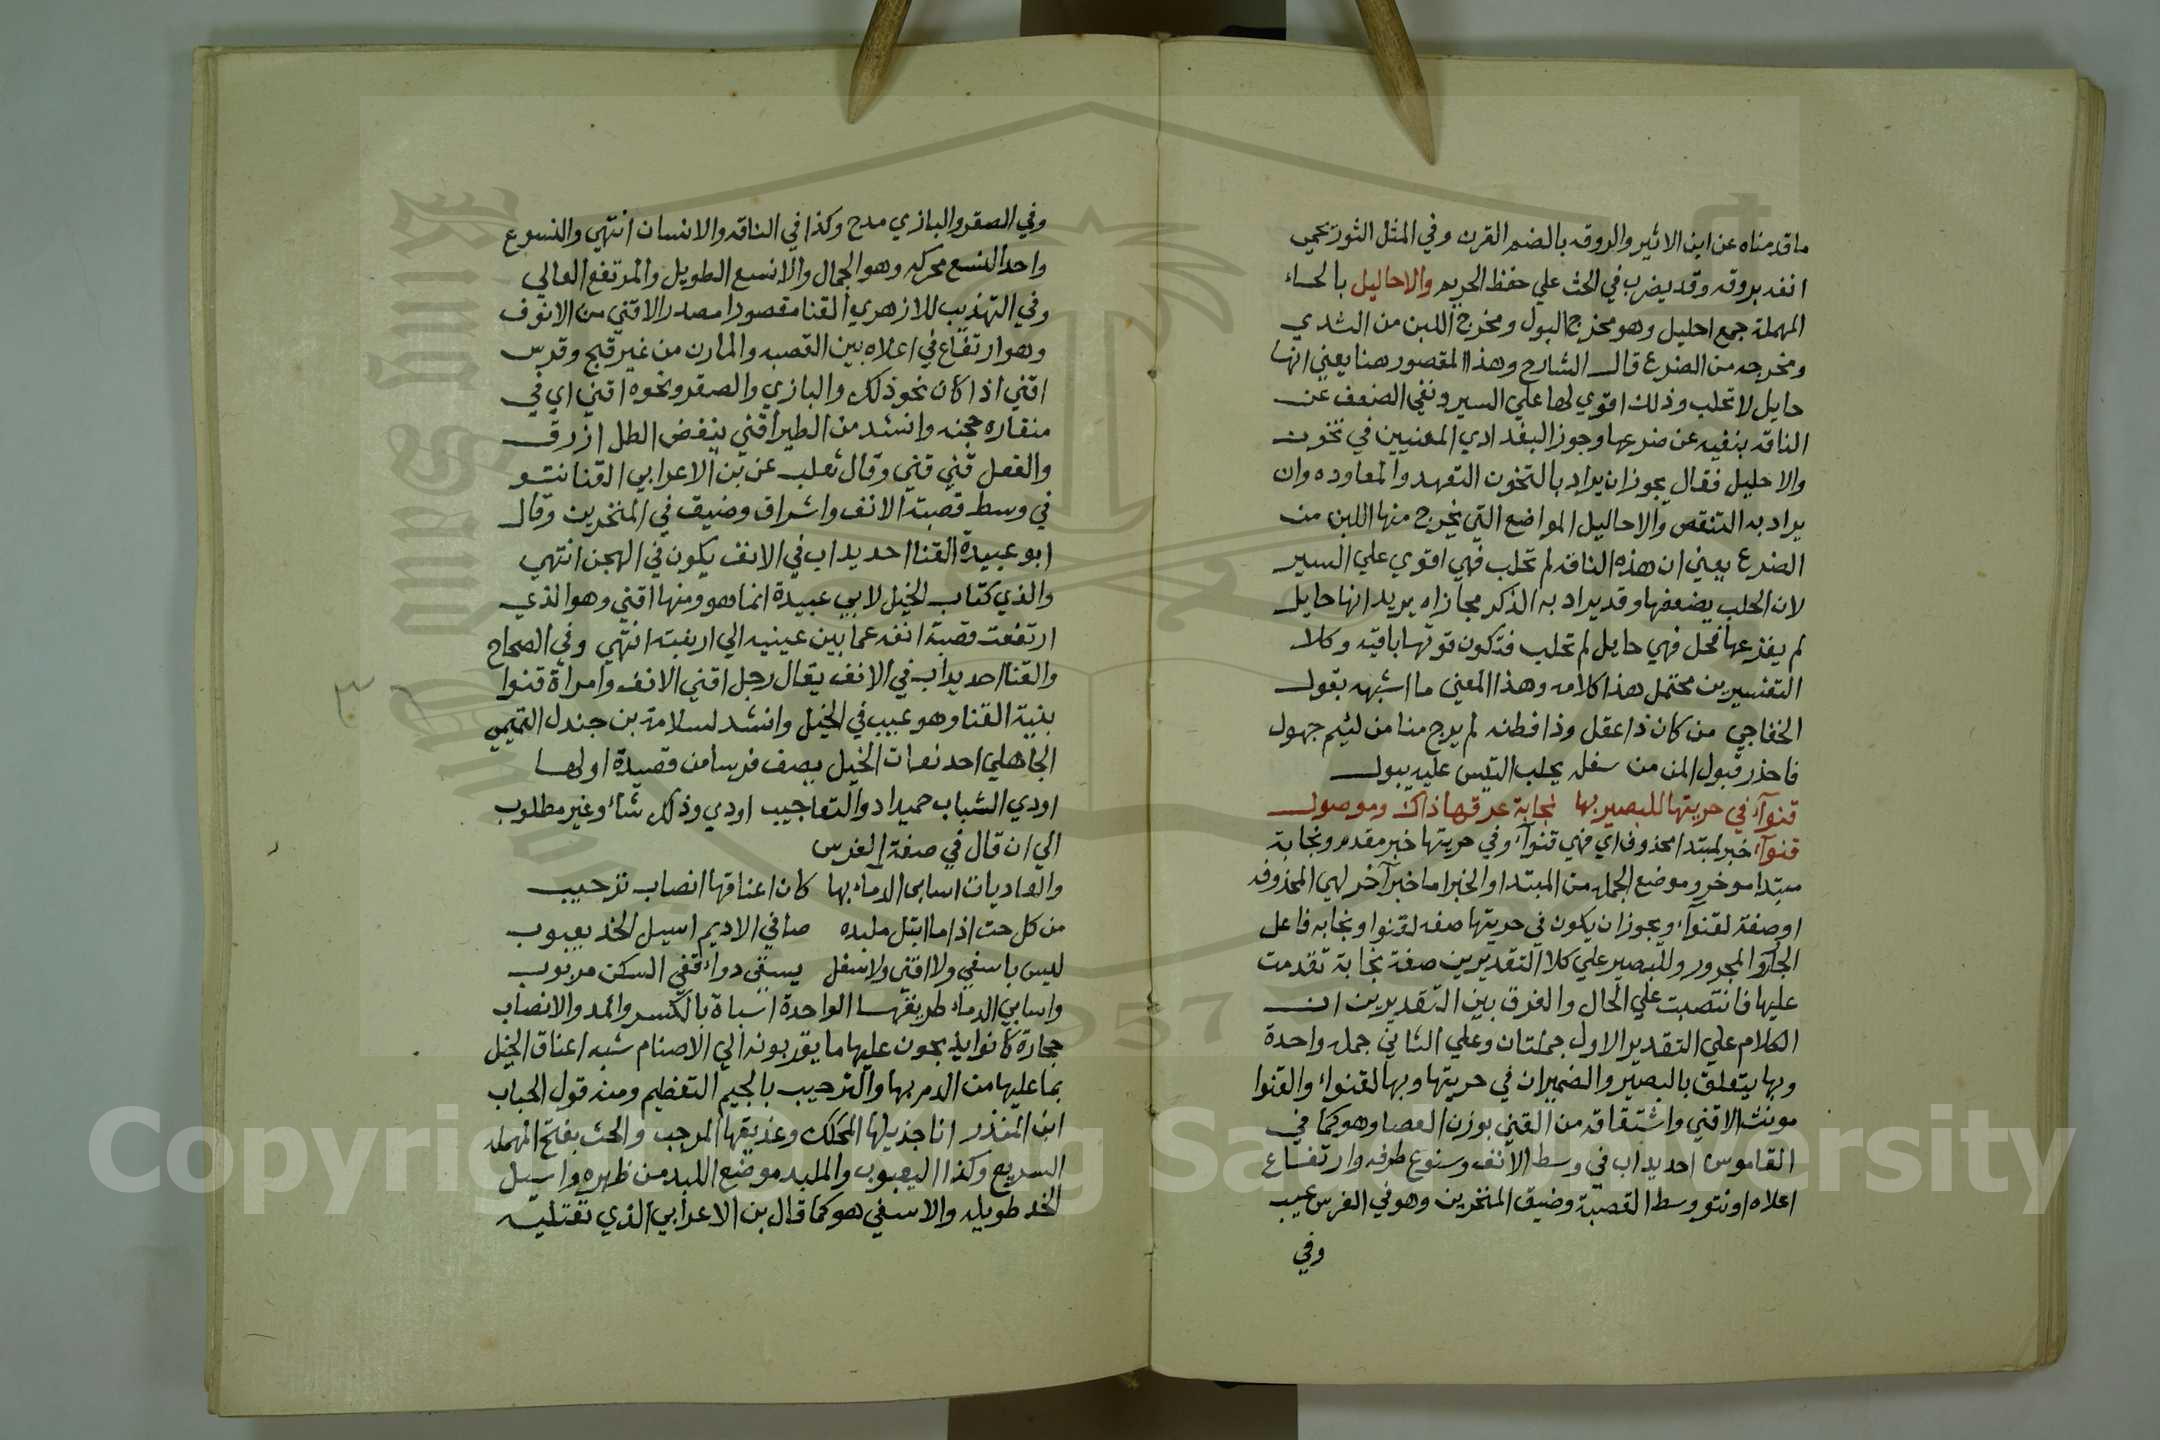 ما قدمناه عن ابن الاثير والروقه بالضم القرن وفي المثل الثور يحمي
انفه بروقه وقد يضرب في الحث علي حفظ الحريم والاحاليل بالحاء
المهملة جمع احليل وهو مخرج البول ومخرج اللبن من الثدي
ومخرجه من الضرع قال الشارح وهذا المقصور هنا يعني انها
حايل لا تحلب وذلك اقوي لها علي السير ونفي الضعف عن
الناقه بنفيه عن ضرعها وجوز البغدادي المعنيين في تخون
والاحليل فقال يجوز ان يراد بالتخون التعهد والمعاوده وان
يراد به التنقص والاحاليل المواضع التي يخرج منها اللبن من
الضرع يعني ان هذه الناقه لم تحلب فهي اقوي علي السير
لان الحلب يضعفها وقد يراد به الذكر مجازا يريد انها حايل
لم يفزعها فحل فهي حايل لم تحلب فتكون قوتها باقيه وكلا
التفسيرين محتمل هذا كلامه وهذا المعني ما اشبهه بقول
الخفاجي من كان ذا عقل وذا فطنه لم يرج منا من لئيم جهول
فاحذر قبول المن من سفله يحلب التيس عليه يبول
قنوآء في حريتها للبصير بها نجابة عرقها ذاك وموصول
قنوآء خبر لمبتدا محذوف اي فهي قنوآء وفي حريتها خبر مقدم ونجابة
مبتدا موخر وموضع الجمله من المبتدا والخبر اما خبر آخر لهي المحذوفه
او صفة لقنوآء ويجوز ان يكون في حريتها صفه لقنوا ونجابه فاعل
الجار والمجرور وللبصير علي كلا التقديرين صفة نجابة تقدمت
عليها فانتصبت علي الحال والفرق بين التقديرين ان
الكلام علي التقدير الاول جملتان وعلي الثاني جمله واحدة
وبها يتعلق بالبصير والضميران في حريتها وبها لقنواء والقنوا
مونث الاقني واشتقاقه من القني بوزن العصا وهو كما في
القاموس احديداب في وسط الانف وسنوع طرفه وارتفاع
اعلاه او نتو وسط القصبة وضيق المنخرين وهو في الفرس عيب
وفي
وفي الصقر والبازي مدح وكذا في الناقه والانسان انتهي والنسوع
واحد النسع محركه وهو الجمال والانسع الطويل والمرتفع العالي
وفي التهذيب للازهري القنا مقصورا مصدر الاقني من الانوف
وهو ارتفاع في اعلاه بين القصبه والمارن من غير قبح وفرس
اقني اذا كان نحو ذلك والبازي والصقر ونحوه اقني اي في
منقاره حجنه وانشد من الطير اقني ينفض الطل ازرق
والفعل قني قني وقال ثعلب عن بن الاعرابي القنا نتو
في وسط قصبة الانف واشراق وضيق في المنخرين وقال
ابو عبيدة القنا احديداب في الانف يكون في الهجن انتهي
والذي كتاب الخيل لابي عبيدة انما هو ومنها اقني وهو الذي
ارتفعت قصبة انفه عما بين عينيه الي ارنبته انتهي وفي الصحاح
والقنا احديداب في الانف يقال رجل اقني الانف وامراة قنوا
بنية القنا وهو عيب في الخيل وانشد لسلامة بن جندل التميمي
الجاهلي احد نعات الخيل يصف فرسا من قصيدة اولها
اودي الشباب حميدا ذو التعاجيب اودي وذلك شاء وغير مطلوب
الي ان قال في صفة الفرس
والعاديات اسابي الدماء بها كان اعناقها انصاب ترحيب
من كل حت اذا ما ابتل ملبده صافي الاديم اسيل الخد يعبوب
ليس باسفي ولا اقني ولا سغل يسقي دواء قفي السكن مربوب
واسابي الدماء طريقها الواحدة اسباة بالكسر والمد والانصاب
حجارة كانوا يذبحون عليها ما يقربونه الي الاصنام شبه اعناق الخيل
بما عليها من الدم بها والترجيب بالجيم التعظيم ومنه قول الحباب
ابن المنذر انا جذيلها المحكك وعذيقها المرجب والحث بفتح المهمله
السريع وكذا اليعبوب والملبد موضع اللبد من ظهره واسيل
الخد طويله والاسفي هو كما قال بن الاعرابي الذي
Copyright © King Saud University
1957